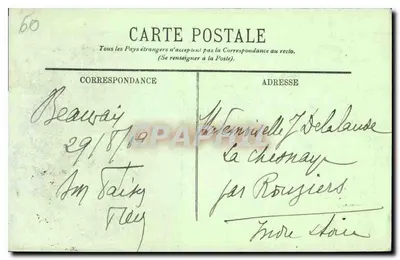 60
CARTE POSTALE
Tous les Pays étrangers n'acceptent pas la Correspondance au recto.
(Se renseigner à la Poste).
CORRESPONDANCE
ADRESSE
Beauvais
29/8/09
Mademoiselle J Delalande
La Chesnaye
par Rouziers
Indre Loire